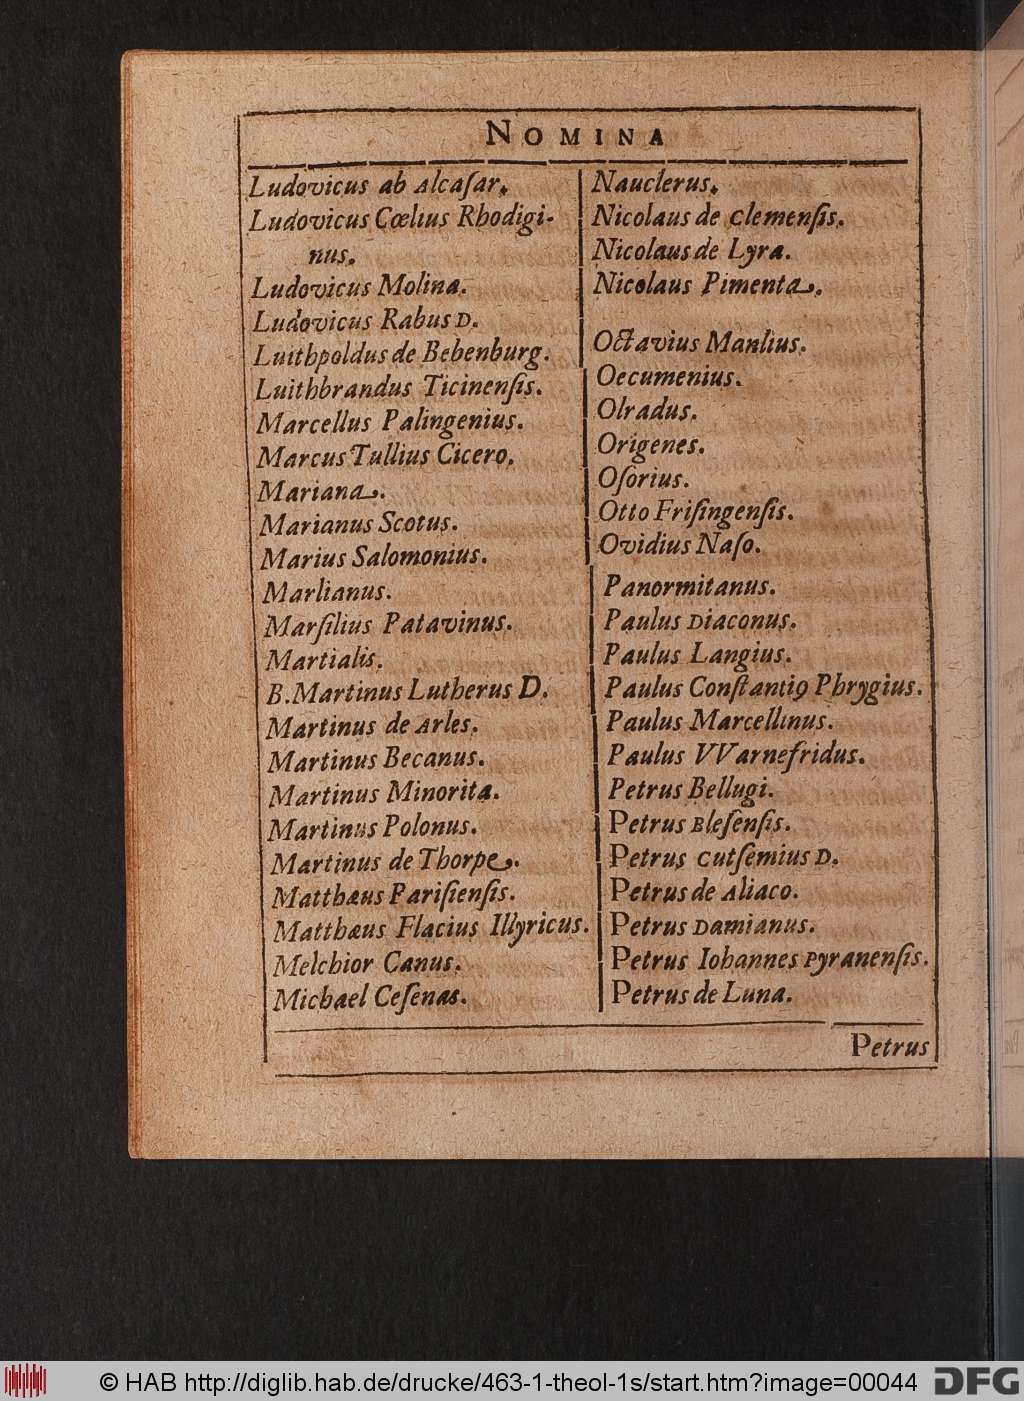 NOMINA
Ludovicus ab Alcaſar.
Ludovicus Cœlius Rhodigi-
nus.
Ludovicus Molina.
Ludovicus Rabus D.
Luithpoldus de Bebenburg.
Luithbrandus Ticinenſis.
Marcellus Palingenius.
Marcus Tullius Cicero.
Mariana.
Marianus Scotus.
Marius Salomonius.
Marlianus.
Marſilius Patavinus.
Martialis.
B. Martinus Lutherus D.
Martinus de Arles.
Martinus Becanus.
Martinus Minorita.
Martinus Polonus.
Martinus de Thorpe.
Matthæus Pariſienſis.
Matthæus Flacius Illyricus.
Melchior Canus.
Michael Ceſenas.
Nauclerus.
Nicolaus de Clemenſis.
Nicolaus de Lyra.
Nicolaus Pimenta.
Octavius Manlius.
Oecumenius.
Olradus.
Origenes.
Oſorius.
Otto Friſingenſis.
Ovidius Naſo.
Panormitanus.
Paulus Diaconus.
Paulus Langius.
Paulus Conſtantiꝰ Phrygius.
Paulus Marcellinus.
Paulus VVarnefridus.
Petrus Bellugi.
Petrus Bleſenſis.
Petrus Cutſemius D.
Petrus de Aliaco.
Petrus Damianus.
Petrus Iohannes Pyranenſis.
Petrus de Luna.
Petrus
© HAB http://diglib.hab.de/drucke/463-1-theol-1s/start.htm?image=00044
DFG